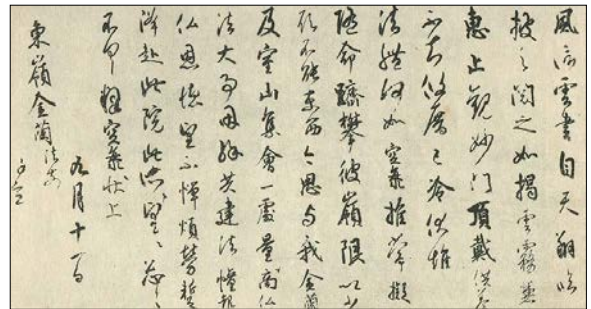 風信雲書自天翔臨
披之閲之如掲雲霧兼
惠止觀妙門頂戴供養
不知攸厝已冷伏惟
法體何如空海推常擬
隨命躋攀彼嶺限以少
願不能東西今思与我金蘭
及室山集會一處量商仏
法大事因縁共建法幢報
仏恩徳望不憚煩勞蹔
降赴此院此所望々忩々
不具釋空海状上
九月十一日
東嶺金蘭法前
謹空